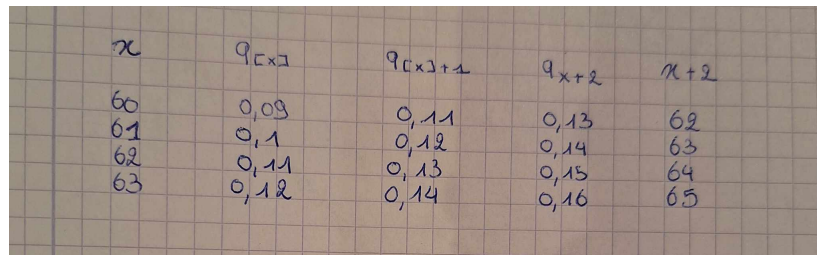 x q[x] q[x]+1 qx+2 x+2
60 0,09 0,11 0,13 62
61 0,1 0,12 0,14 63
62 0,11 0,13 0,15 64
63 0,12 0,14 0,16 65